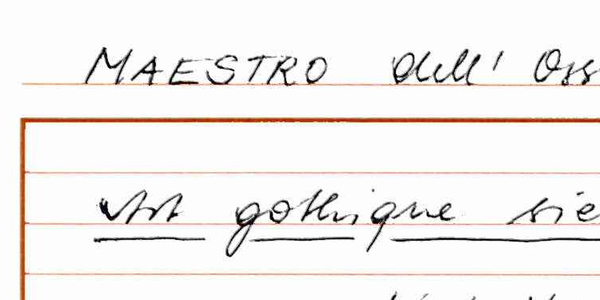 MAESTRO dell' Oss
Art gothique sie